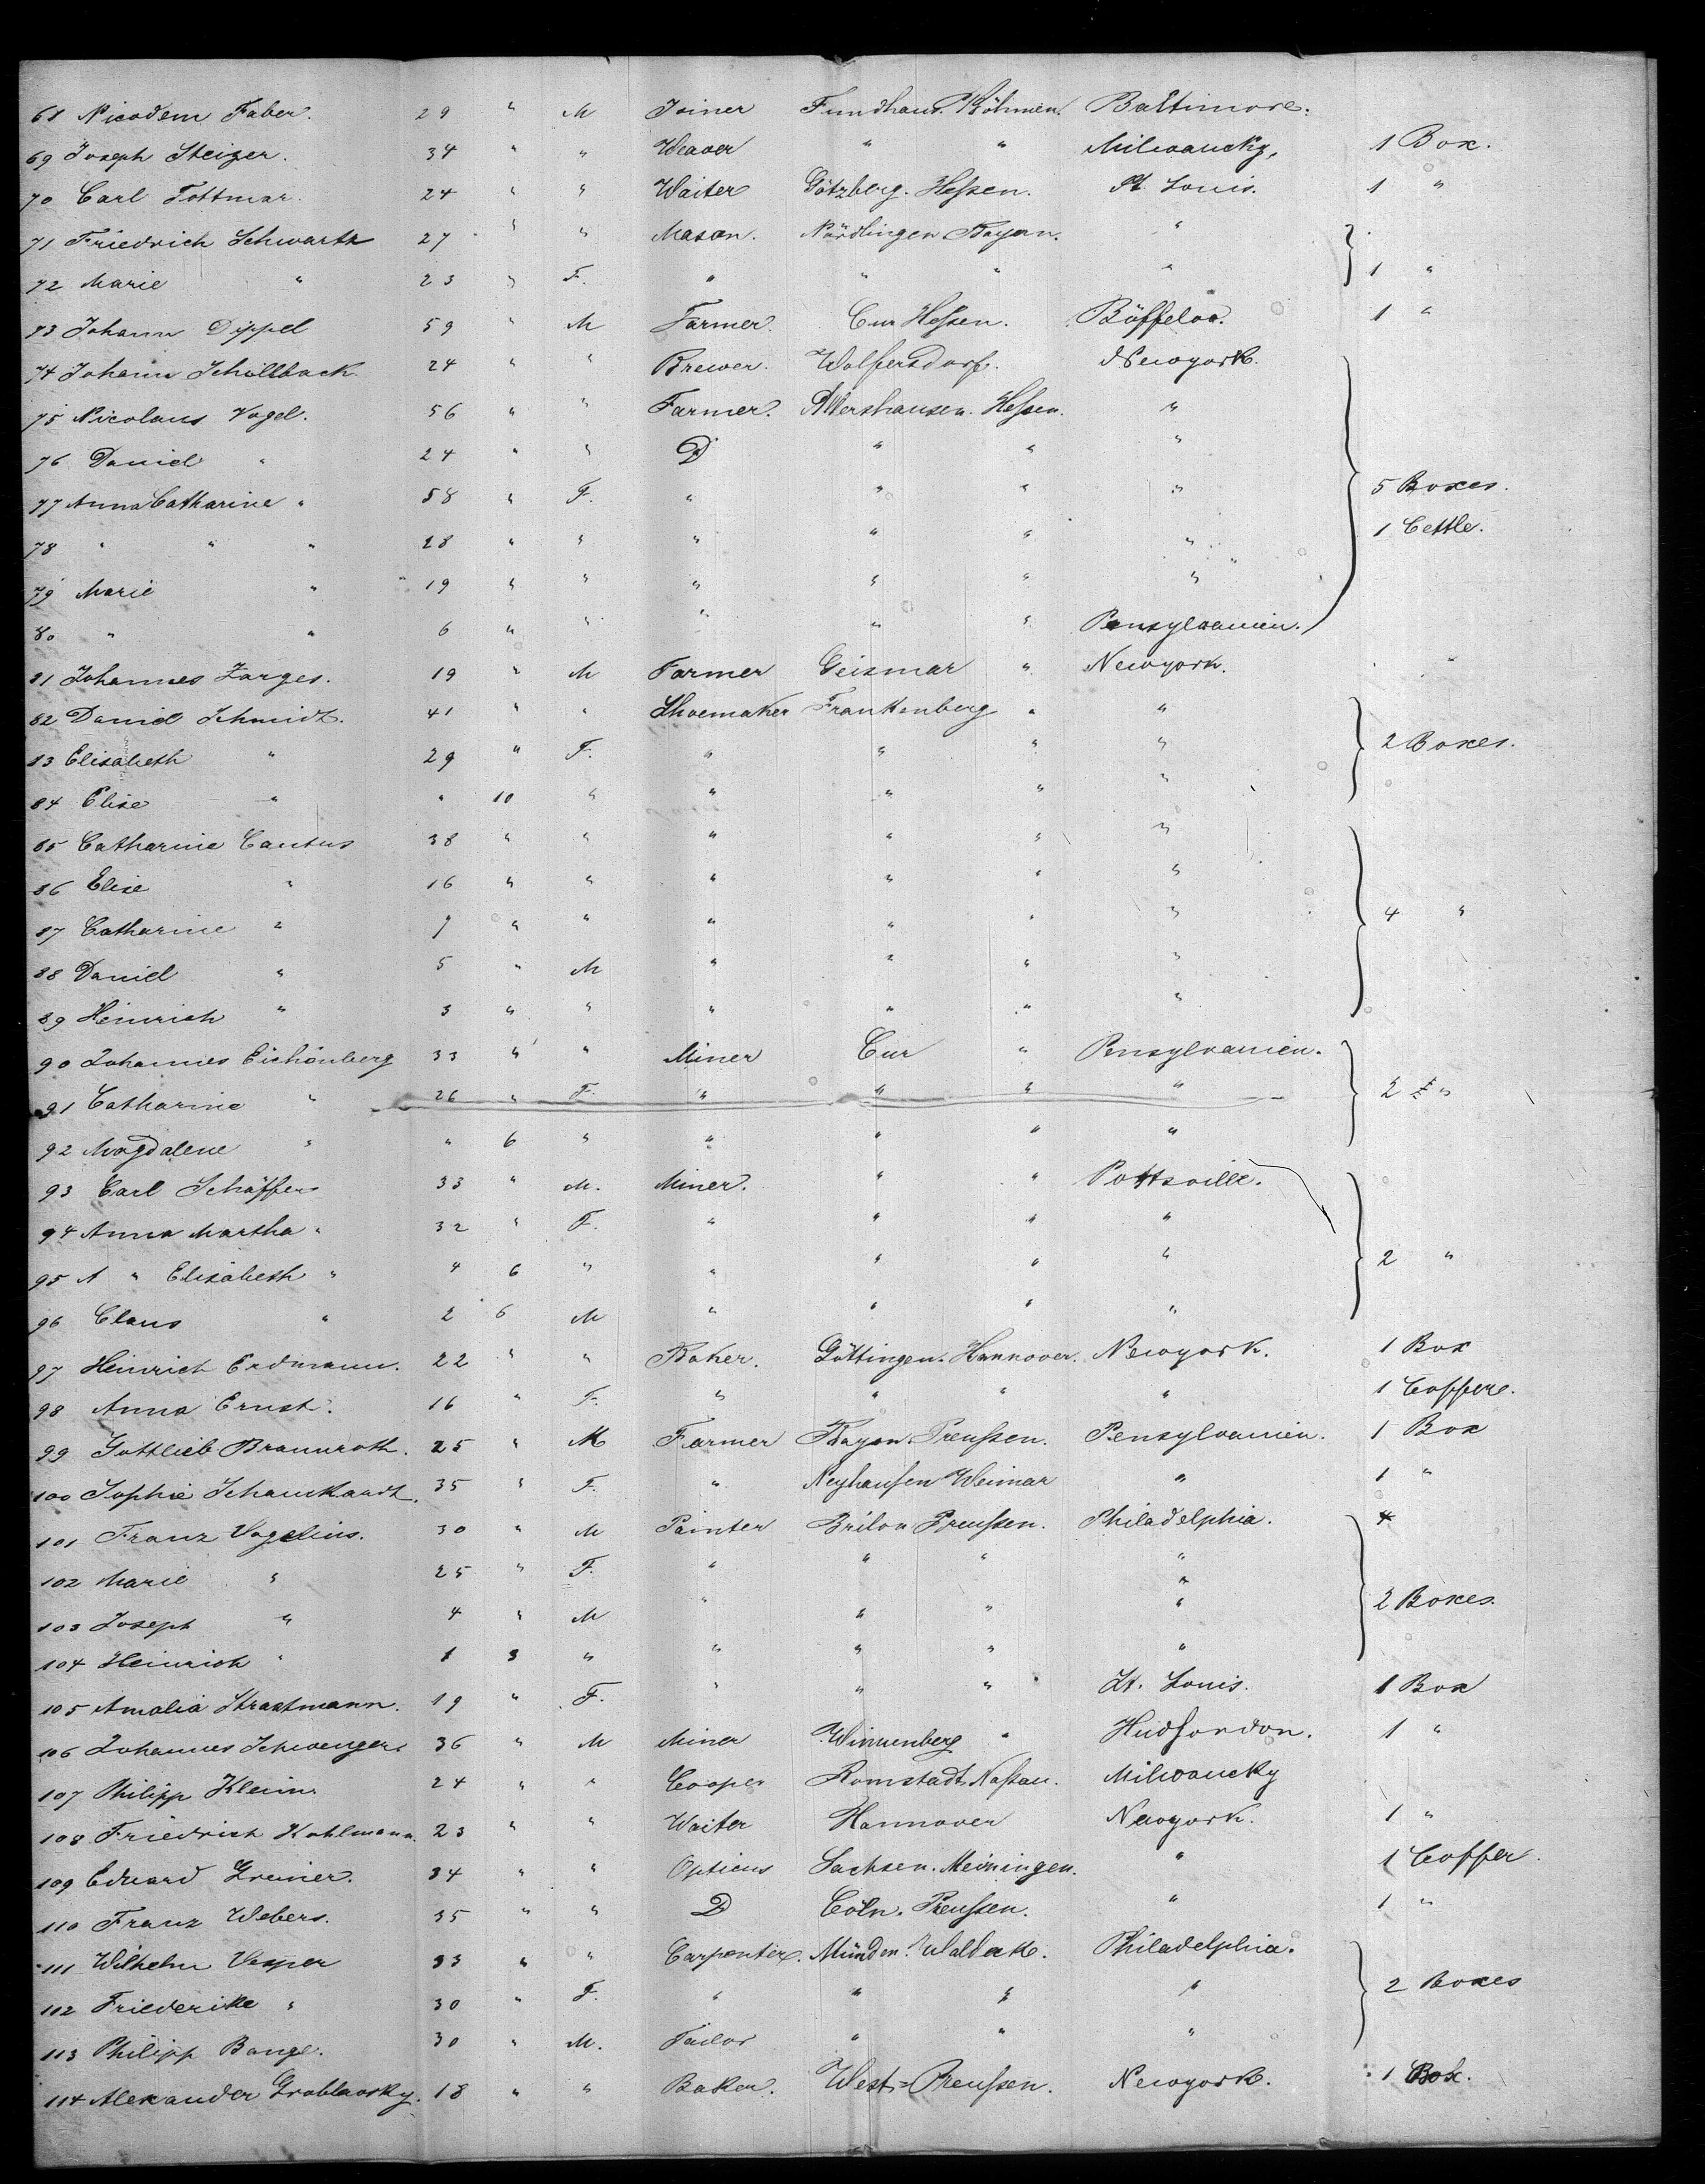 68 Nicodem Faber. 29 " M Joiner Fundhaus. Böhmen. Baltimore.
69 Joseph Steizer. 34 " " Weaver " " Milwaucky. 1 Box.
70 Carl Tottmar. 24 " " Waiter Götzberg. Hessen. St. Louis. 1 "
71 Friedrich Schwartz 27 " " Mason. Nördlingen Bayern. "
72 Marie " 23 " F. " " " " 1 "
73 Johann Dippel 59 " M Farmer. Cur Hessen. Böffeloa. 1 "
74 Johann Schöllback. 24 " " Brewer. Wolfersdorf. Newyork.
75 Nicolaus Vogel. 56 " " Farmer. Allershausen. Hessen. "
76 Daniel " 24 " " D " " "
77 Anna Catharine " 58 " F. " " " " 5 Boxes.
78 " " " 28 " " " " " " 1 Cettle.
79 Marie " 19 " " " " " "
80 " " 6 " " " " " Pensylvanien.
81 Johannes Zarges. 19 " M Farmer Geismar " Newyork. "
82 Daniel Schmidt. 41 " " Shoemaker Frankenberg " "
83 Elisabeth " 29 " F. " " " " 2 Boxes.
84 Elise " " 10 " " " " "
85 Catharine Cantus 38 " " " " " "
86 Elise " 16 " " " " " "
87 Catharine " 9 " " " " " " 4 "
88 Daniel " 5 " M " " " "
89 Heinrich " 3 " " " " " "
90 Johannes Eichönberg 33 " " Miner Cur " Pensylvanien.
91 Catharine " 26 " F. " " " " 2 "
92 Magdalene " " 6 " " " " "
93 Carl Schäffer 33 " M. Miner. " " Pottsville.
94 Anna Martha " 32 " F. " " " "
95 A " Elisabeth " 4 6 " " " " " 2 "
96 Claus " 2 6 M " " " "
97 Heinrich Erdmann. 22 " " Baker. Göttingen. Hannover. Newyork. 1 Box
98 Anna Ernst. 16 " F. " " " " 1 Coffere.
99 Gottlieb Braunroth. 25 " M Farmer Bayern. Preussen. Pensylvanien. 1 Box
100 Sophie Schauckardt. 35 " F. " Neyhausen Weimar " 1 "
101 Franz Vogelius. 30 " M Painter Brilon Preussen. Philadelphia.
102 Marie " 25 " F. " " " "
103 Joseph " 4 " M " " " " 2 Boxes.
104 Heinrich " 1 3 " " " " "
105 Amalia Strastmann. 19 " F. " " " St. Louis. 1 Box
106 Johannes Schwengers 36 " M Miner Winnenberg " Hudsordon. 1 "
107 Philipp Klein. 24 " " Cooper Romstadt. Nassau. Milwaucky
108 Friedrich Kohlmann. 23 " " Waiter Hannover Newyork. 1 "
109 Eduard Greiner. 34 " " Opticus Sachsen. Meiningen. " 1 Coffer.
110 Franz Webers. 35 " " D Cöln. Preussen. " 1 "
111 Wilhelm Vesper 33 " " Carpentire. Münden. Waldeck. Philadelphia.
112 Friederike " 30 " F. " " " " 2 Boxes
113 Philipp Bange. 30 " M. Tailor " " "
114 Alexander Groblawsky. 18 " " Baker. West=Preussen. Newyork. 1 Box.